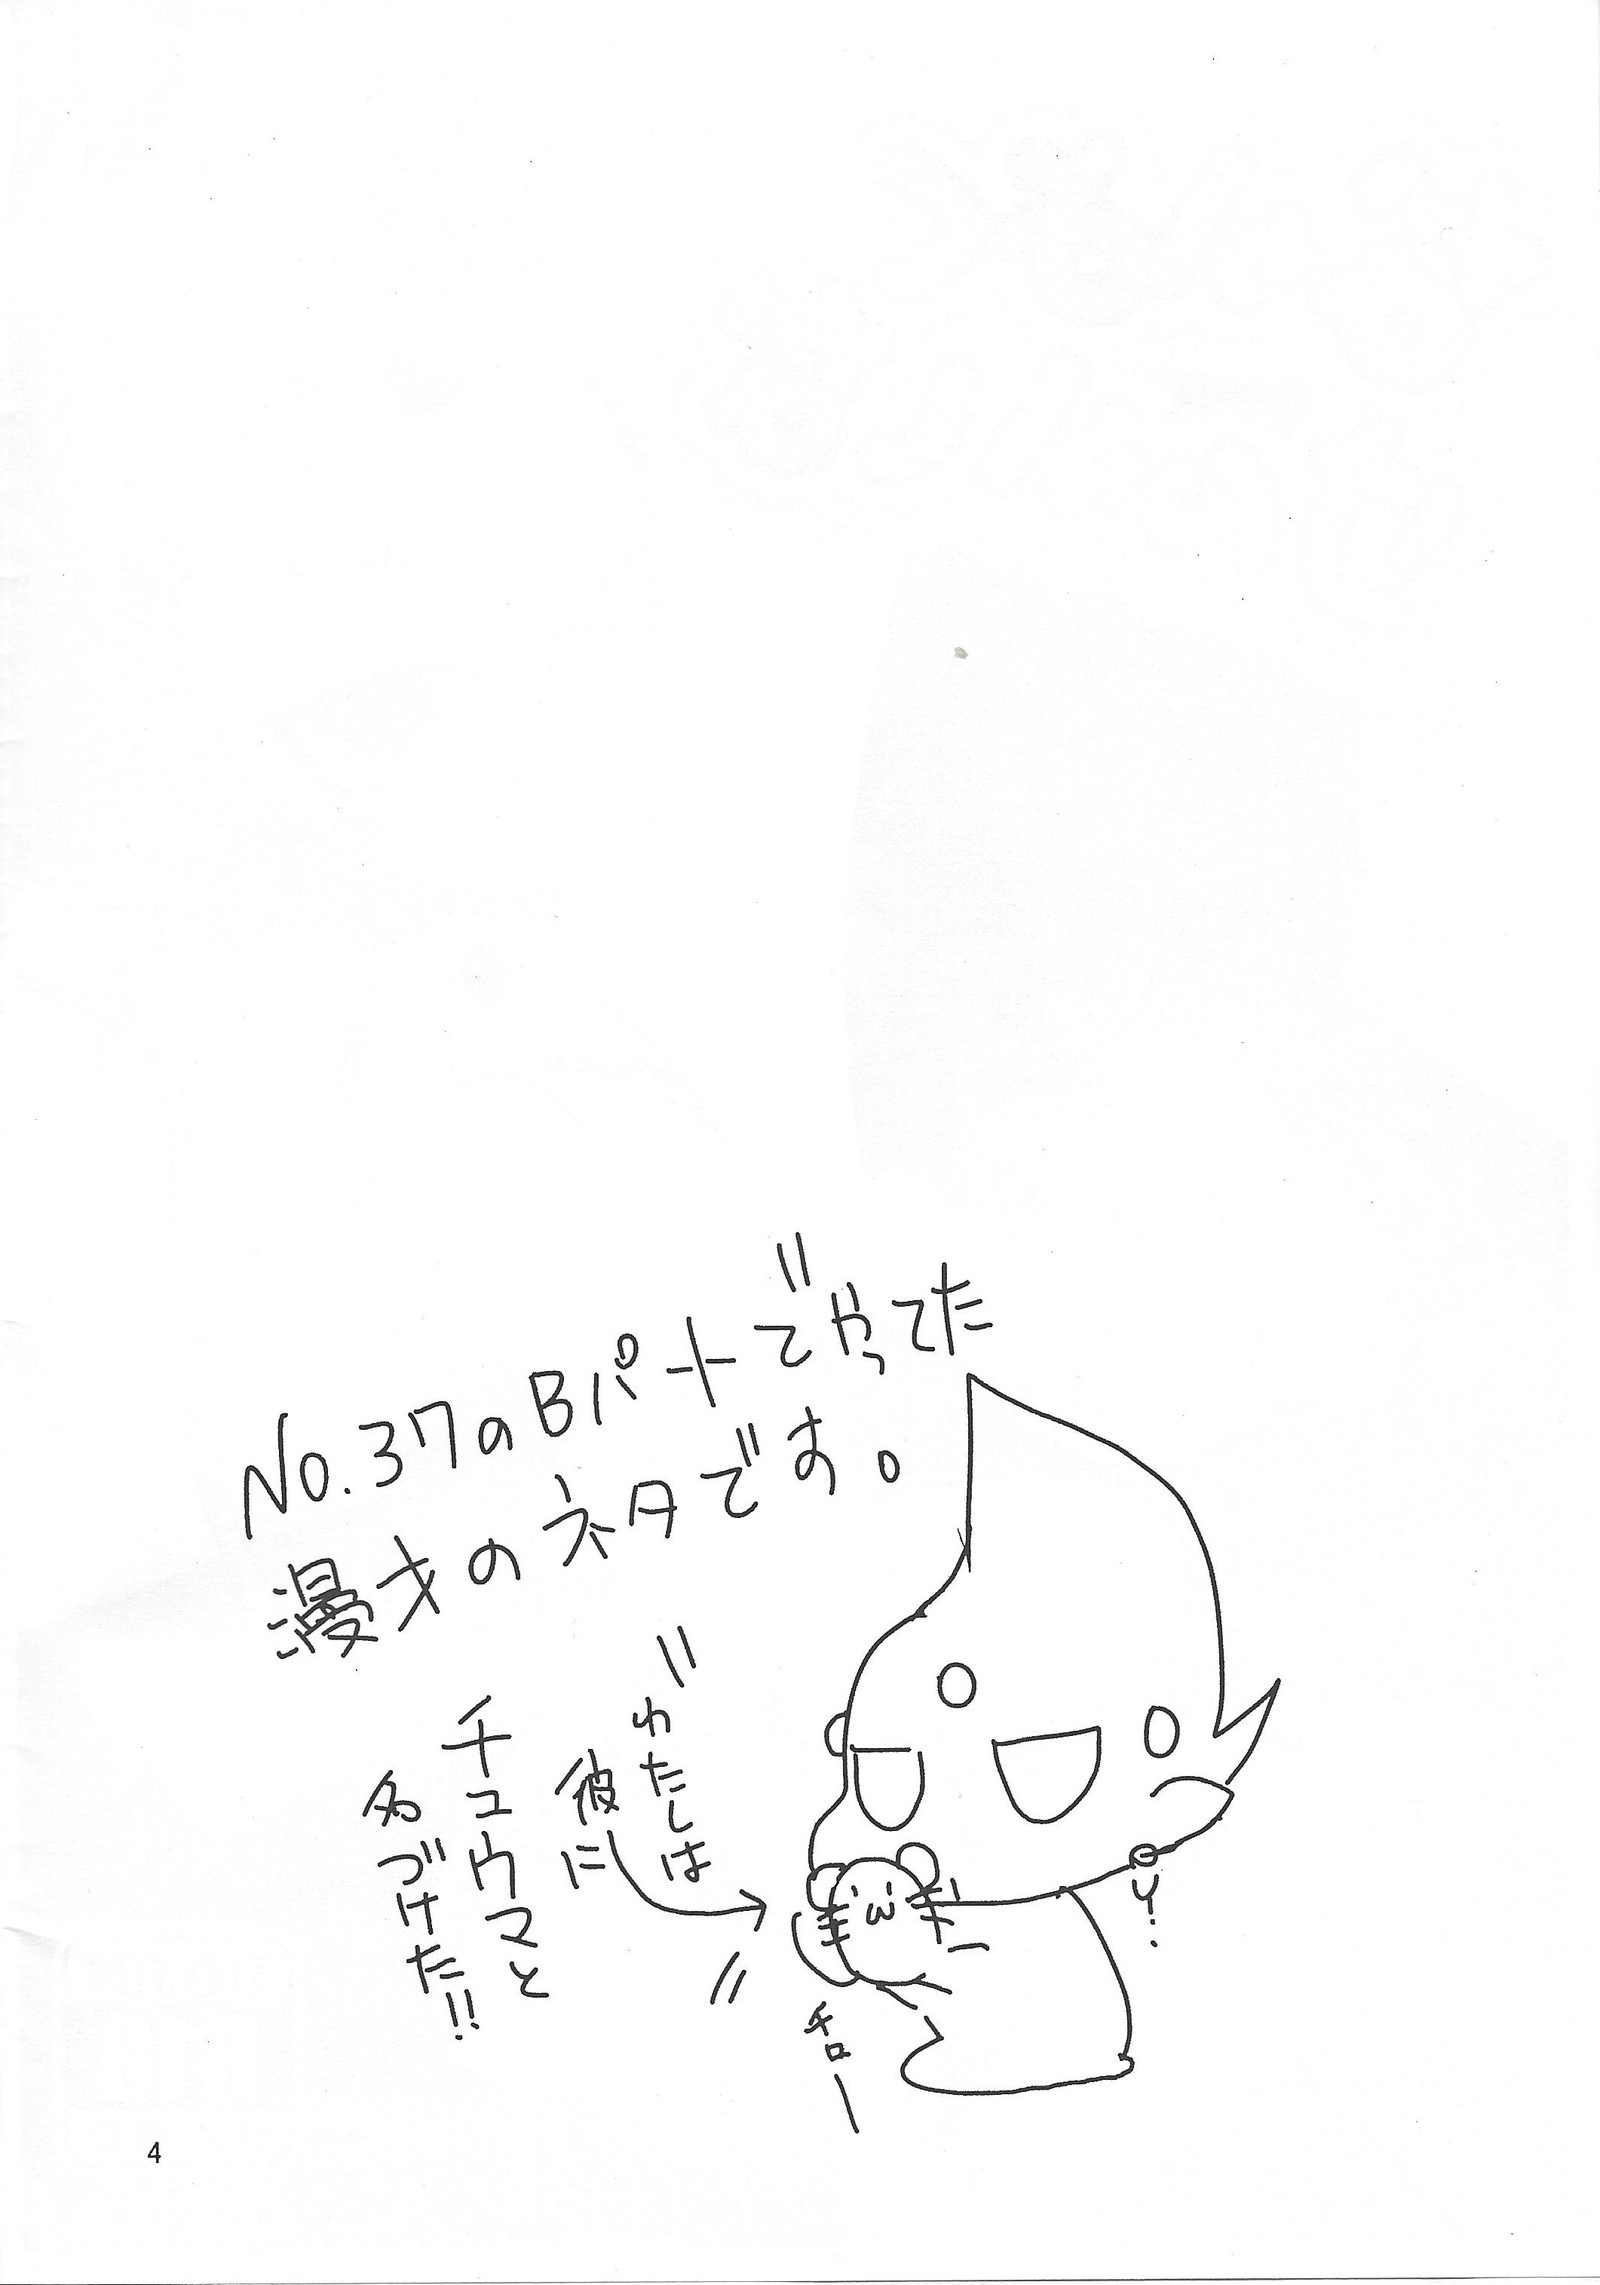 No.37のBパートでやってた
漫才のネタです。
わたしは
彼に
チュウマと
名づけた!!
チロー
4